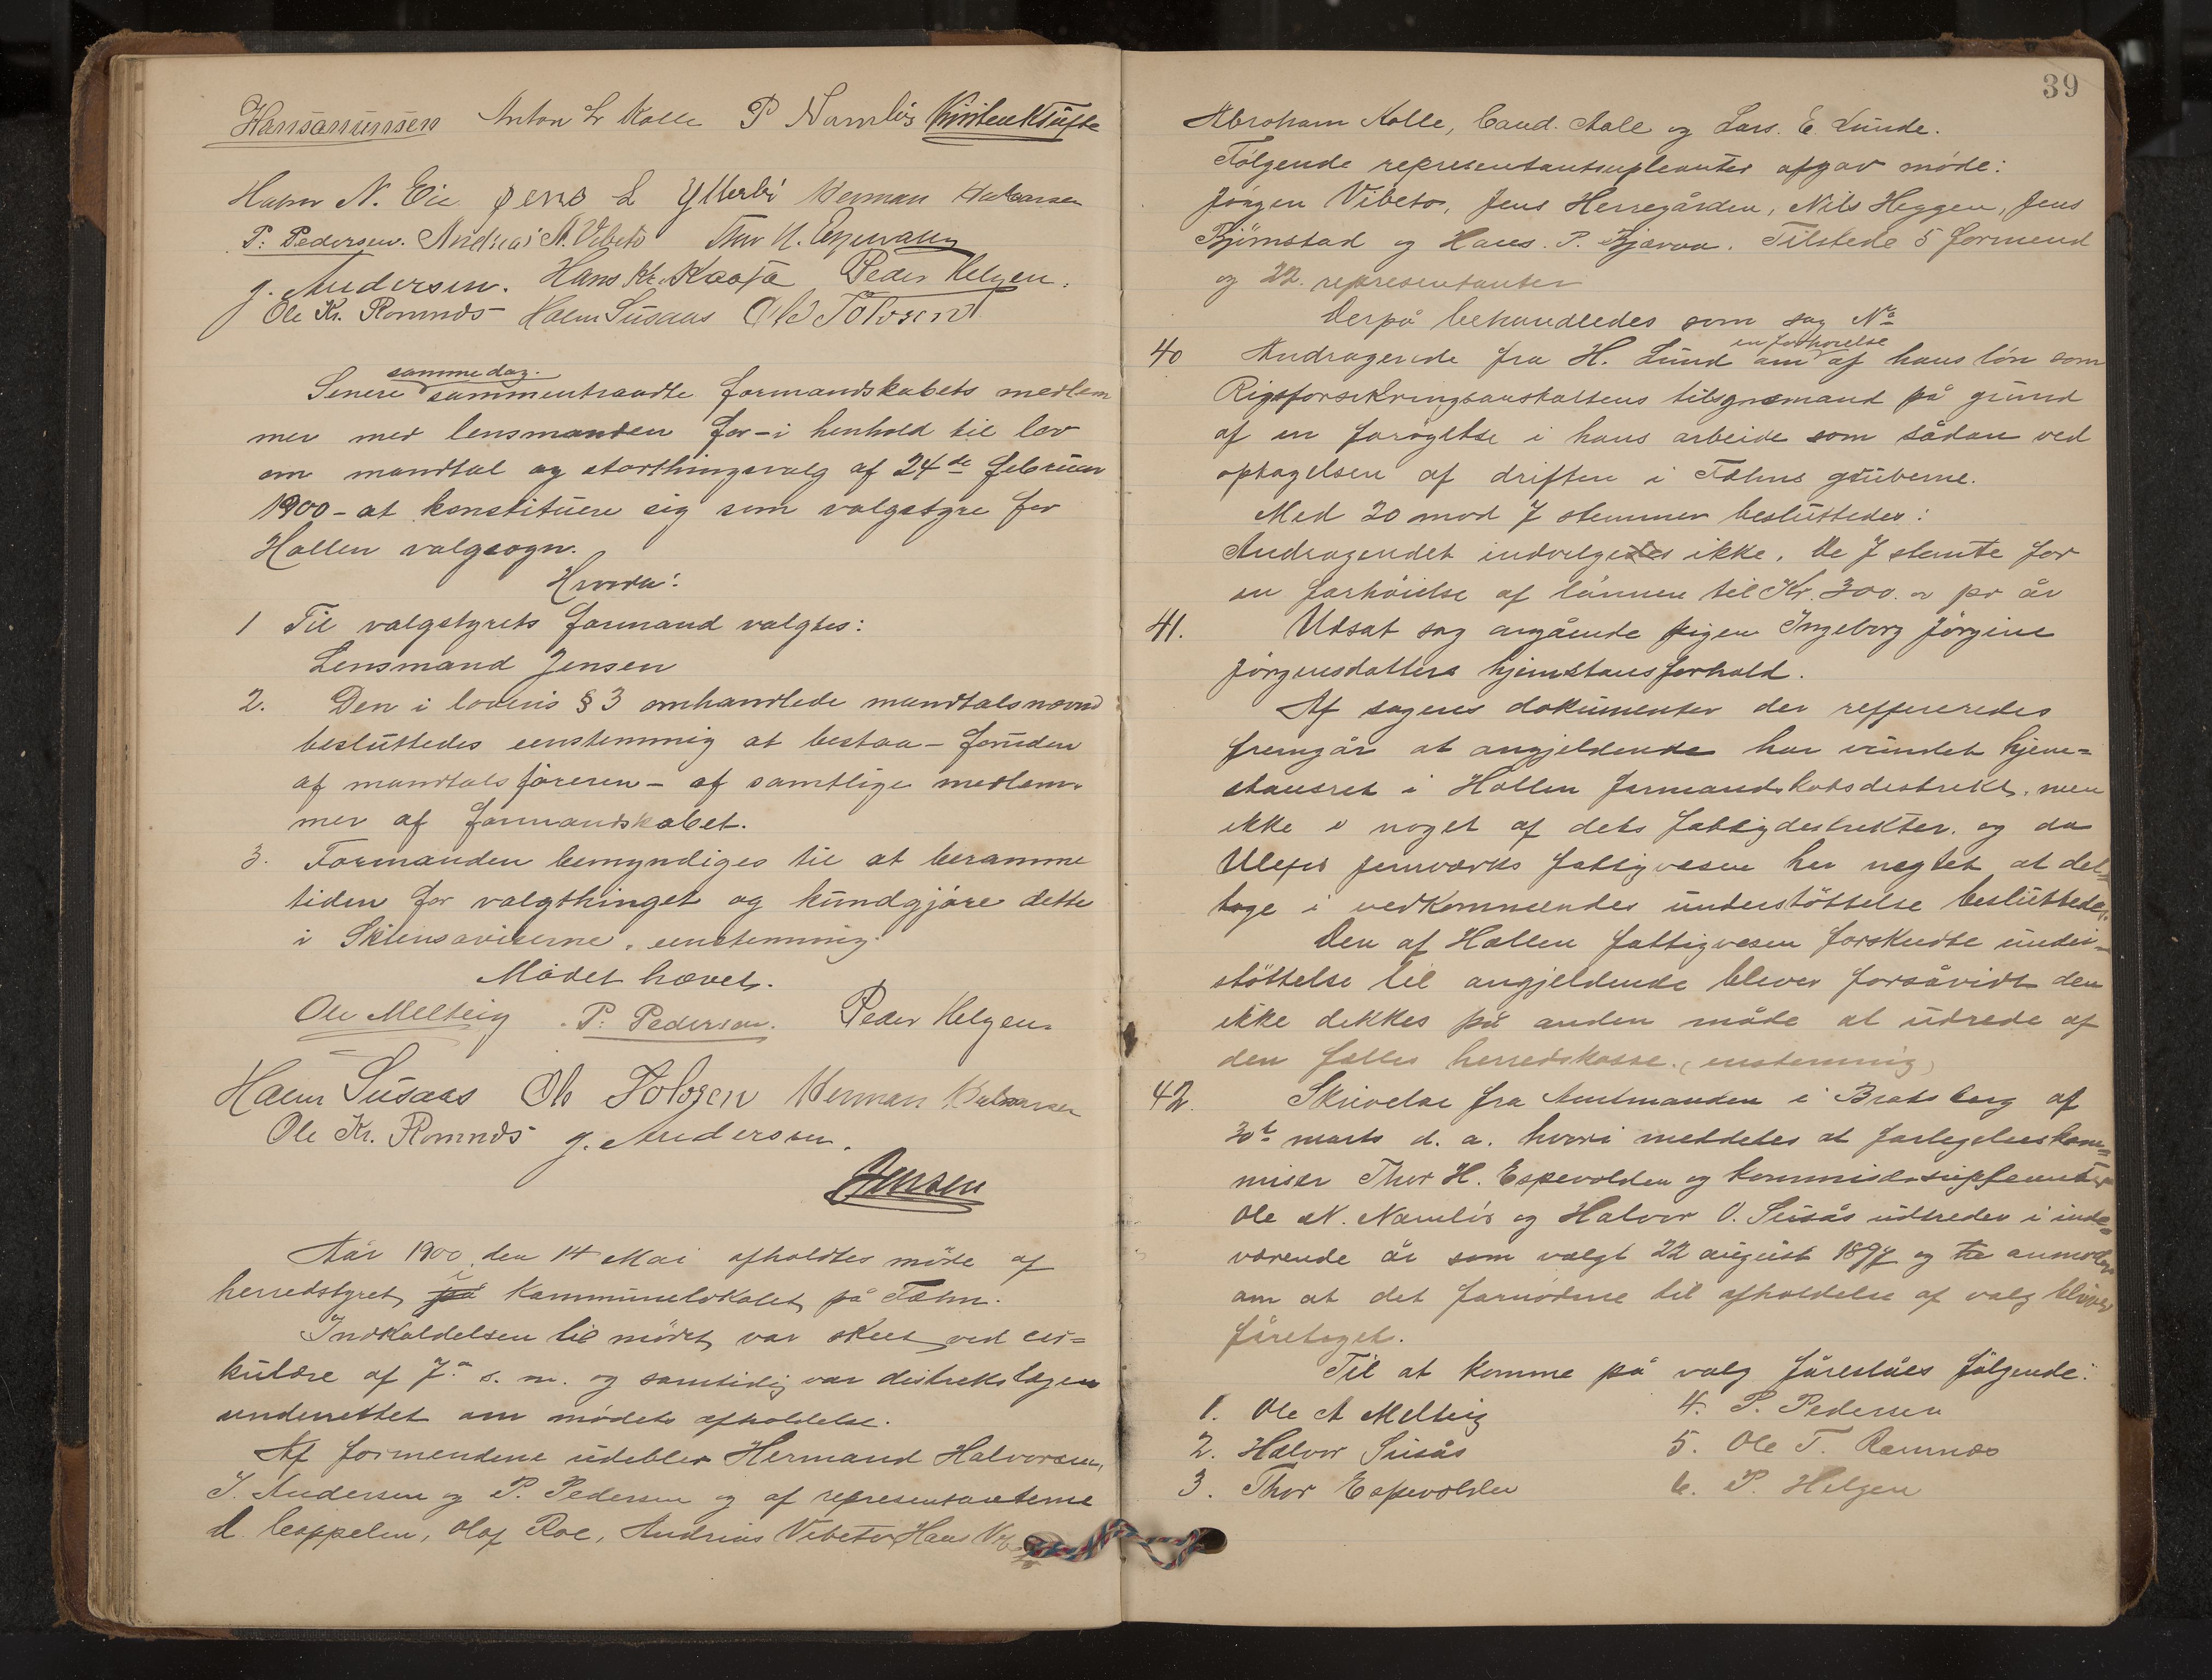 Hans Amunsen Anton L Kolle P Namløs Kittil Klufte
Halvor N. Eie Jens L Ytterbø Herman Halvorsen
P. Pedersen. Andreas A. Vibeto Thor H. Espevalen
J. Andersen. Hans Kr. Kaasa Peder Helgen.
Ole Kr. Romnes Halvor Susaas Ole Tolvsen
samme dag.
Senere sammentraadte formandskabets medlem
mer med lensmanden for - i henhold til lov
om mandtal og storthingsvalg af 24de februar
1900 - at konstituere sig som valgstyre for
Hollen valgsogn.
Hvorda:
1 Til valgstyrets formand valgtes:
Lensmand Jensen
2. Den i lovens § 3 omhandlede mandtalsnævnd
besluttedes eenstemmig at bestaa - foruden
af mandtalsføreren - af samtlige medlem-
mer af formandskabet.
3. Formanden bemyndiges til at beramme
tiden for valgthinget og kundgjøre dette
i Skiensaviserne. eenstemmig.
Mødet hævet.
Ole Melteig P. Pedersen. Peder Helgen.
Halvor Susaas Ole Tolvsen Herman Halvorsen
Ole Kr. Romnes J. Andersen.
Jensen
Aar 1900 den 14 Mai afholdtes møde af
herredstyret på i kommunelokalet på Fæhn.
Indkaldelsen til mødet var skeet ved cir=
kulære af 7de s. m. og samtidig var distriktslægen
underrettet om mødets afholdelse.
Af formendene udeblev Hermand Halvorsen,
J. Andersen og P. Pedersen og af representanterne
D. Cappelen, Olaf Roe, Andreas Vibeto, Hans
39
Abraham Kolle, Cand. Aall og Lars. E. Lunde.
Følgende representantsupleanter afgav møde:
Jörgen Vibeto, Jens Herregården, Nils Heggen, Jens
Bjørnstad og Hans. P. Bjærva. Tilstede 5 formend
og 22. representanter
Derpå behandledes som sag No
40 Andragende fra H. Lund om en forhøielse af hans løn som
Rigsforsikringsanstaltens tilsynsmand på grund
af en forøgelse i hans arbeide som sådan ved
optagelsen af driften i Fæhns gruberne.
Med 20 mod 7 stemmer besluttedes:
Andragendet indvilgedes ikke. De 7 stemte for
en forhöielse af lönnen til Kr. 300. pr år
41. Udsat sag angående pigen Ingeborg Jörgine
Jörgensdatters hjemstavnsforhold.
Af sagens dokumenter der reffereredes
fremgår at angjeldende har vundet hjem=
stavnsret i Hollen formandskabsdistrikt, men
ikke i noget af dets fattigdistrikter. og da
Ulefos jernværks fattigvesen har negtet at del=
tage i vedkommendes understöttelse besluttedes.
Den af Hollen fattigvesen forskudte under=
stöttelse til angjeldende bliver forsåvidt den
ikke dekkes på anden måde at udrede af
den felles herredskasse. (enstemmig)
42. Skrivelse fra Amtmanden i Bratsberg af
30te marts d. a. hvori meddeles at forligelseskom=
misær Thor H. Espevolden og kommisærsuppleanter
Ole N. Namløs og Halvor O. Susås udtreder i inde=
værende år som valgt 22 august 1897 og anmodes
om at det fornødne til afholdelse af valg bliver
føretaget.
Til at komme på valg föreslåes fölgende:
1. Ole A Melteig 4. P. Pedersen
2. Halvor Susås 5. Ole T. Ramnæs
3. Thor Espevolden 6. P. Helgen